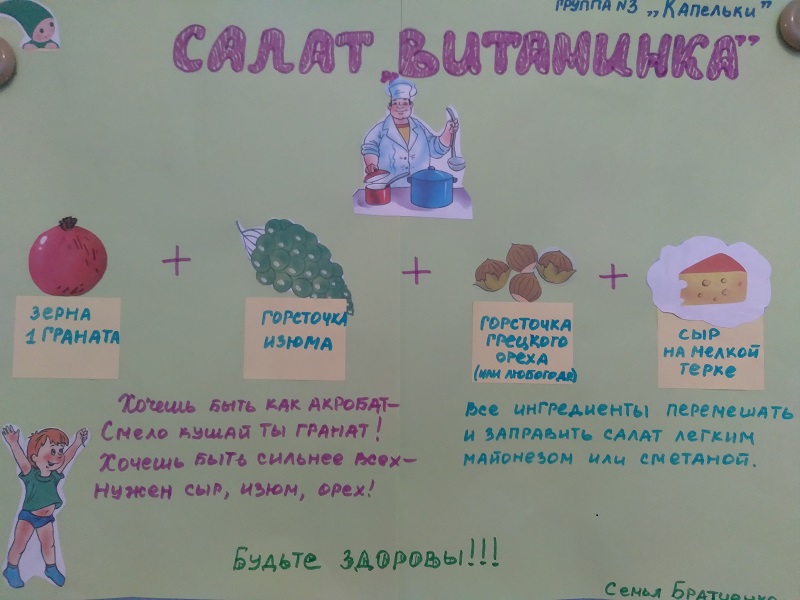 ГРУППА №3 „Капельки"
САЛАТ „ВИТАМИНКА"
ЗЕРНА
1 ГРАНАТА
ГОРСТОЧКА
ИЗЮМА
ГОРСТОЧКА
ГРЕЦКОГО
ОРЕХА
(ИЛИ ЛЮБОГО ДР)
СЫР
НА МЕЛКОЙ
ТЕРКЕ
Хочешь быть как акробат—
Смело кушай ты гранат!
Хочешь быть сильнее всех—
Нужен сыр, изюм, орех!
Все ингредиенты перемешать
и заправить салат легким
майонезом или сметаной.
Будьте здоровы!!!
Семья Братченко